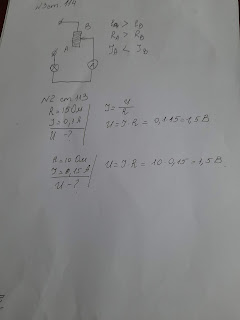 N3 ст 114
B
A
A
A
RA > RB
IA < IB
N2 ст. 113
R = 15 Ом
I = 0,1 А
U - ?
I = U/R
U = I·R = 0,1·15 = 1,5 В
R = 10 Ом
I = 0,15 А
U - ?
U = I R = 10·0,15 = 1,5 В.